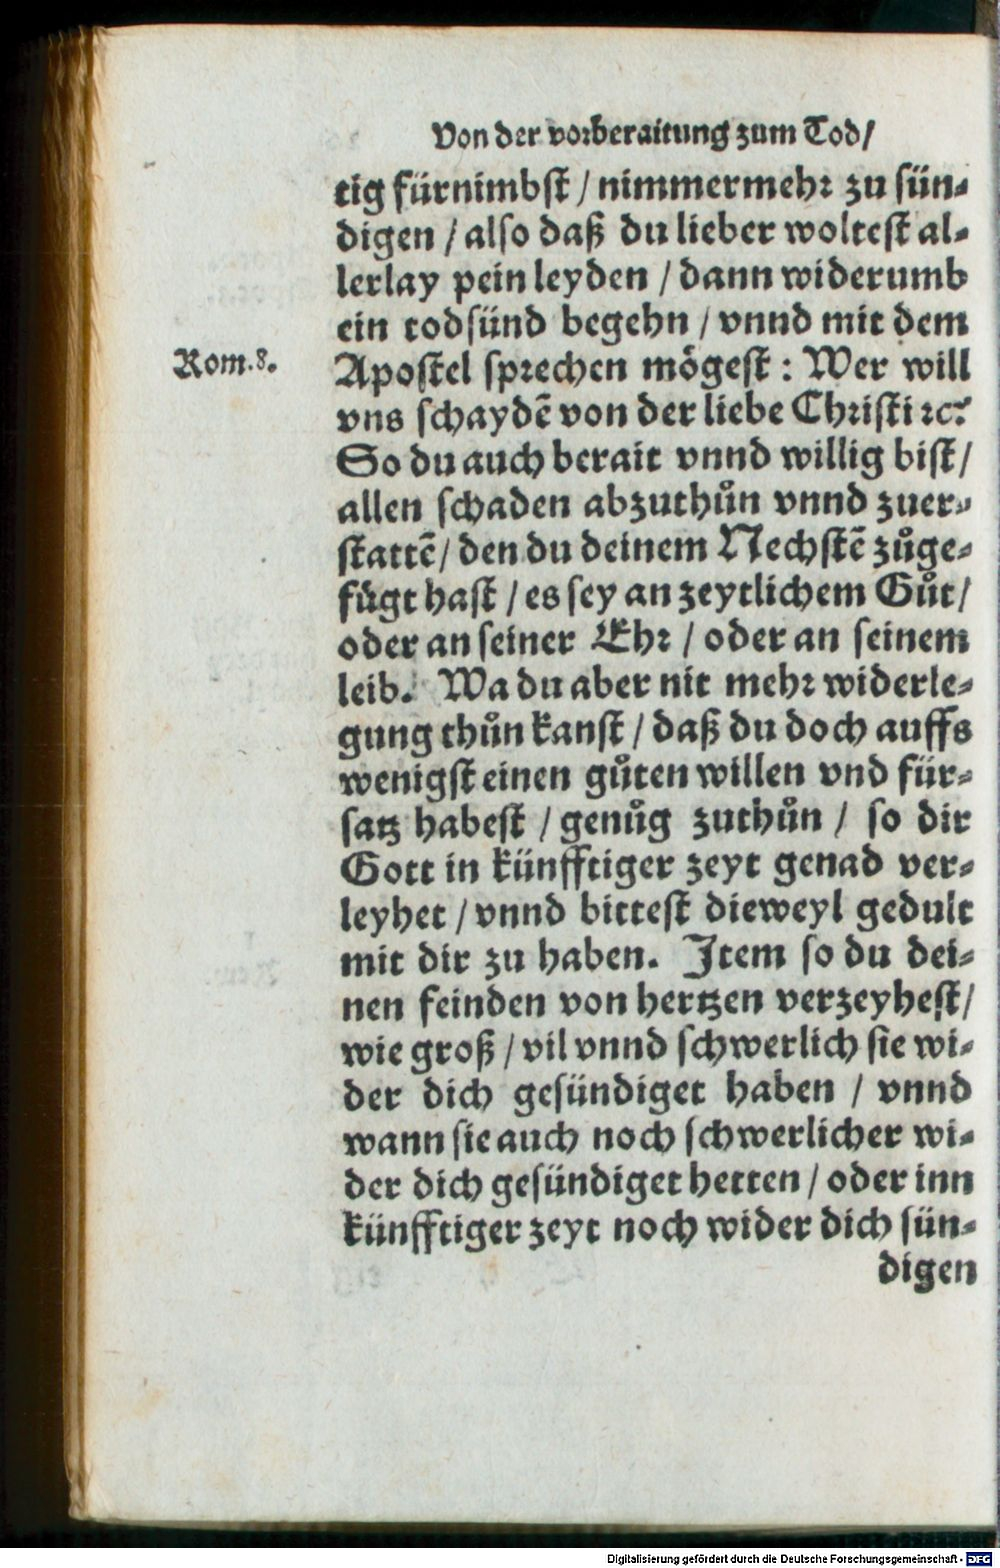 Von der vorberaitung zum Tod/
tig fürnimbst / nimmermehr zu sün-
digen / also daß du lieber woltest al-
lerlay pein leyden / dann widerumb
ein todsünd begehn / vnnd mit dem
Rom.8.
Apostel sprechen mögest : Wer will
vns schaydẽ von der liebe Christi ꝛc.?
So du auch berait vnnd willig bist/
allen schaden abzuthůn vnnd zuer-
stattẽ/ den du deinem Nechstẽ zůge-
fügt hast / es sey an zeytlichem Gůt/
oder an seiner Ehr / oder an seinem
leib. Wa du aber nit mehr widerle-
gung thůn kanst / daß du doch auffs
wenigst einen gůten willen vnd für-
satz habest / genůg zuthůn / so dir
Gott in künfftiger zeyt genad ver-
leyhet / vnnd bittest dieweyl gedult
mit dir zu haben. Item so du dei-
nen feinden von hertzen verzeyhest/
wie groß / vil vnnd schwerlich sie wi-
der dich gesündiget haben / vnnd
wann sie auch noch schwerlicher wi-
der dich gesündiget hetten / oder inn
künfftiger zeyt noch wider dich sün-
digen
Digitalisierung gefördert durch die Deutsche Forschungsgemeinschaft - DFG